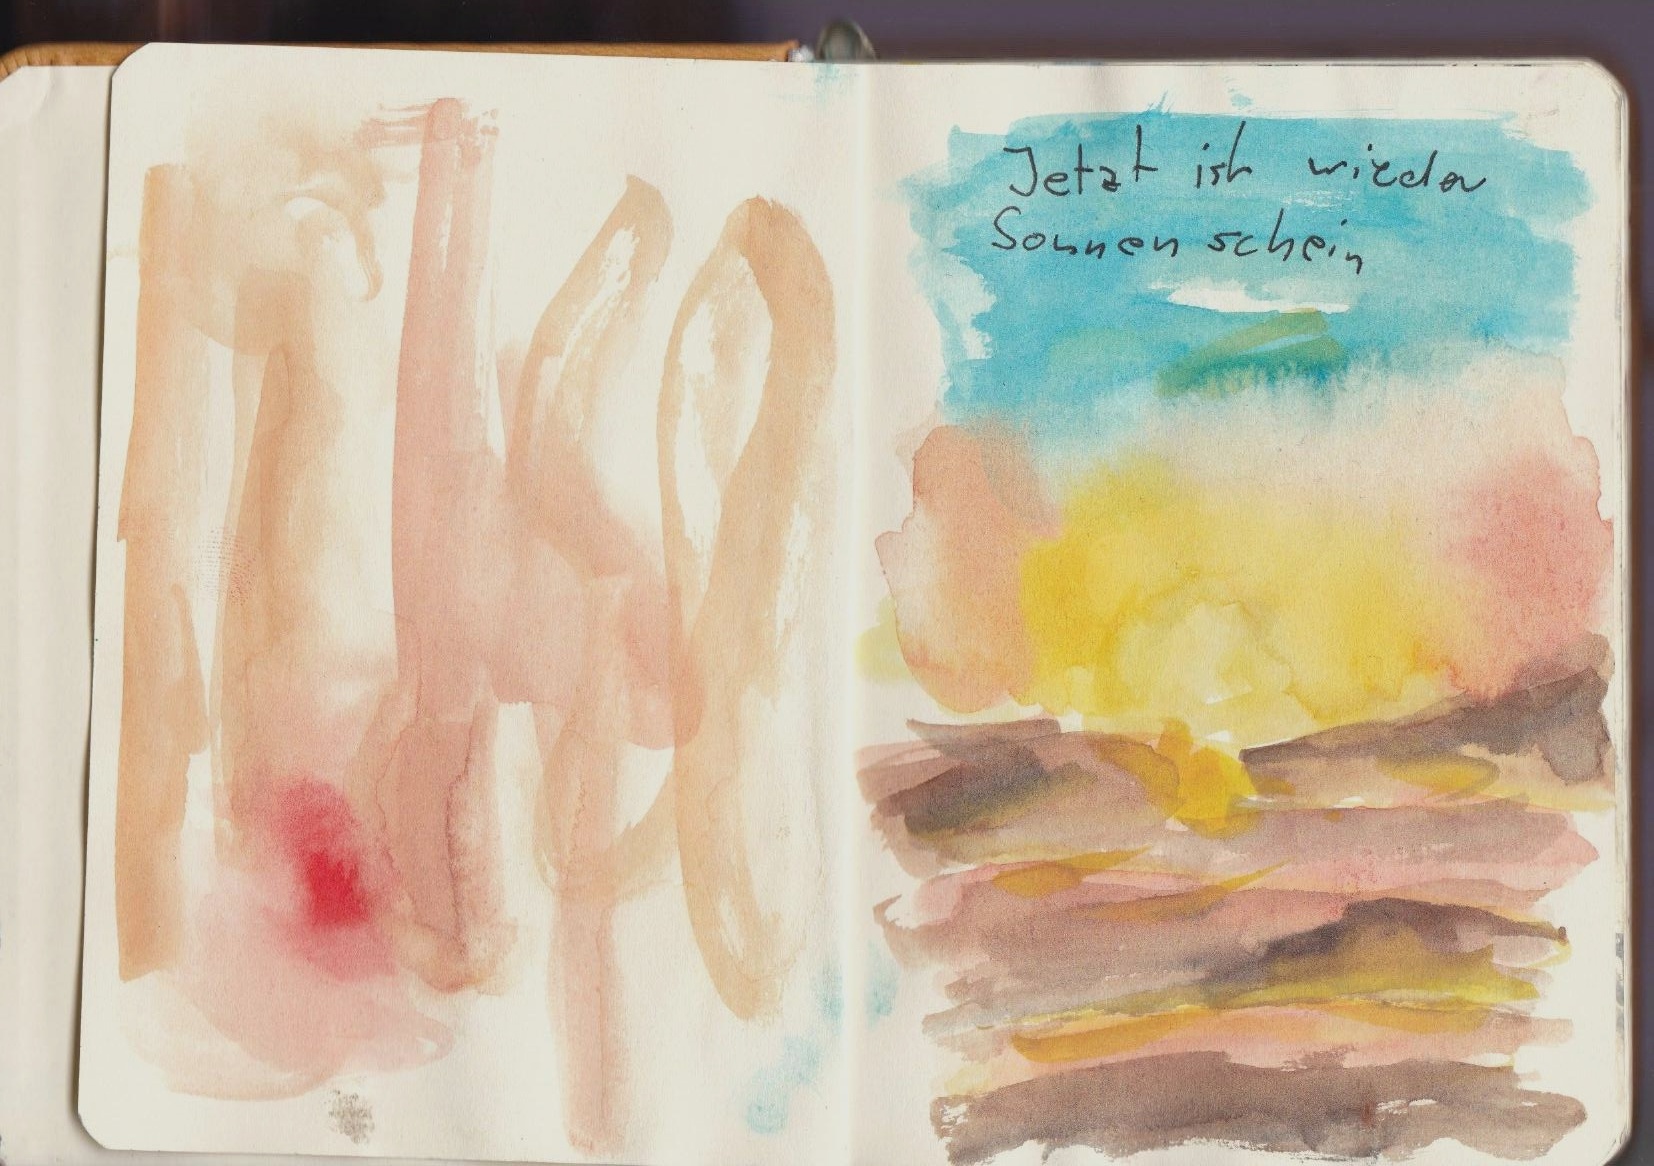 Jetzt ist wieder
Sonnenschein